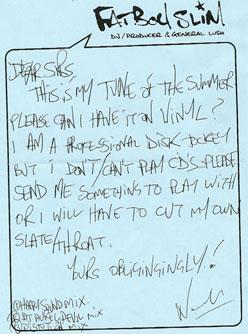 FATBOY SLIM
DJ/PRODUCER & GENERAL LUSH
DEAR SIRS,
THIS IS MY TUNE of THE SUMMER
PLEASE CAN I HAVE IT ON VINYL?
I AM A PROFESSIONAL DISK JOKEY
BUT I DON'T/CAN'T PLAY CD'S. PLEASE
SEND ME SOMETHING TO PLAY WITH
OR I WILL HAVE TO CUT MY OWN
SLATE/THROAT.
YOURS OBLIGINGINGLY!
MIX
MIX
MIX